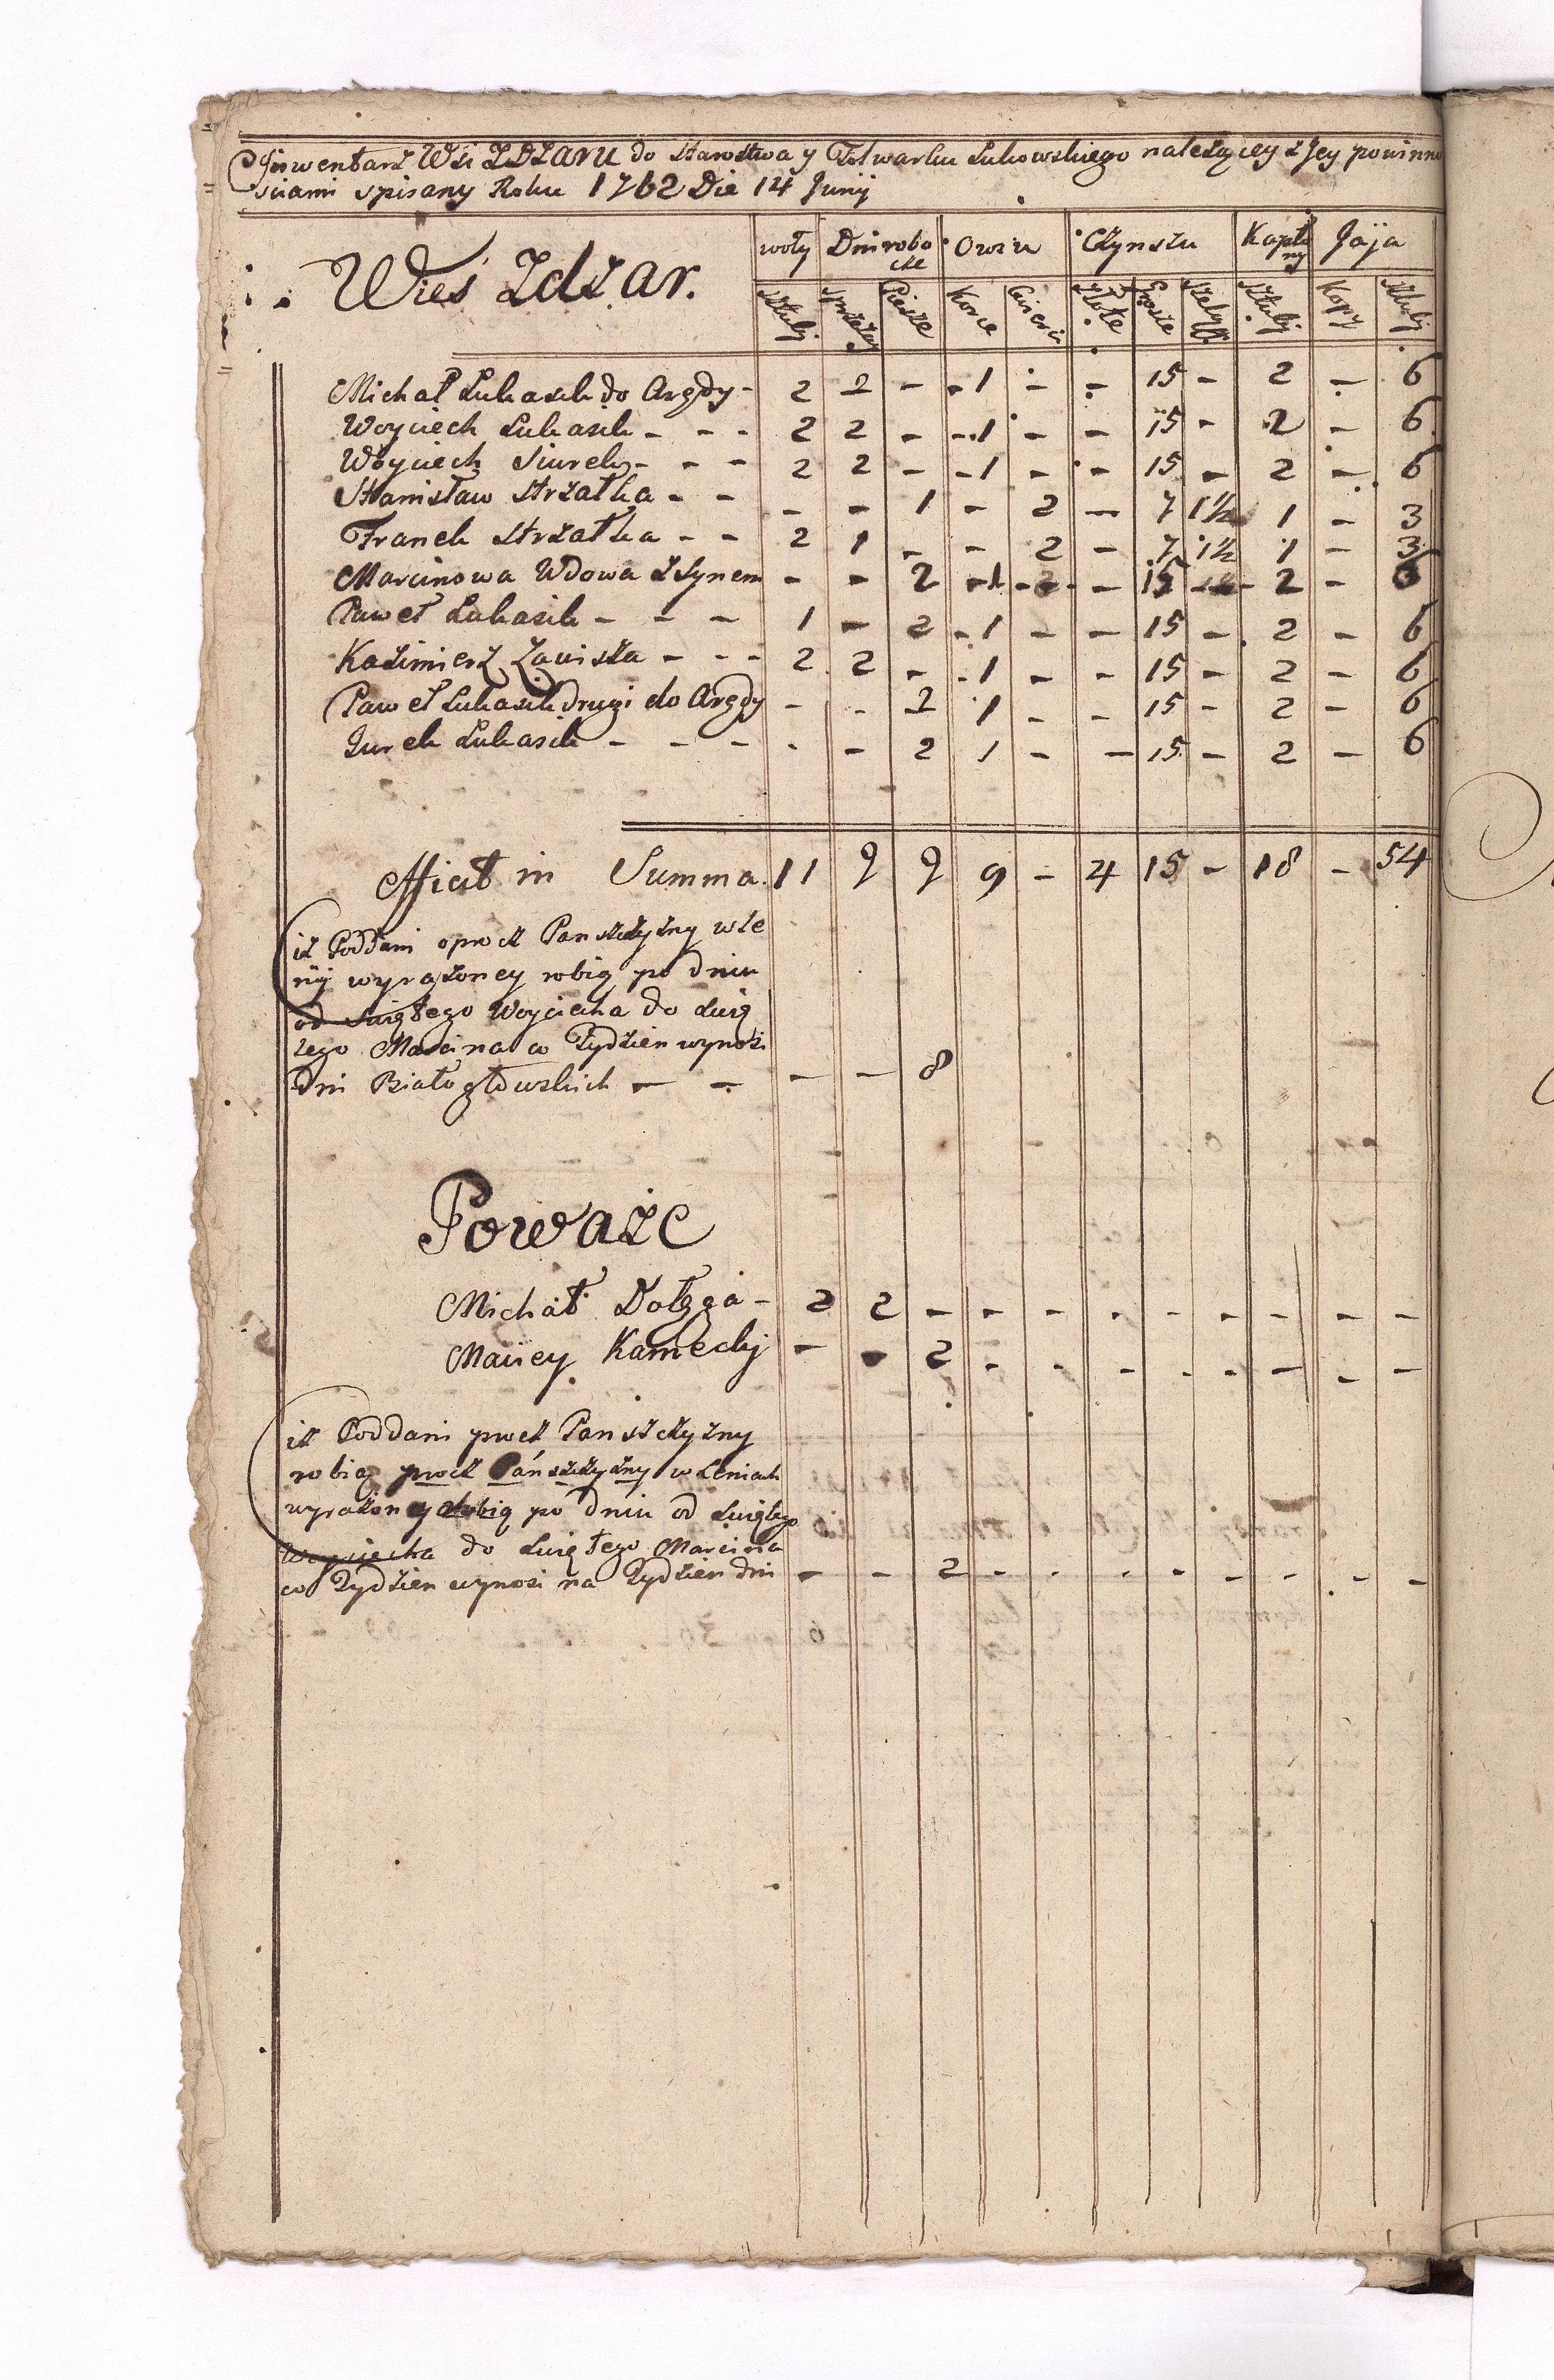 Jnwentarz Wśi ZDZARU do Starostwa y Folwarku Łukowskiego należącey z Jey powinno
sciami spisany Roku 1762 Die 14 Junij
Wieś Zdżar.
woły Dni robo Owsu Czynszu Kapłu Jaja
cze ny
Sztuki Pieszе Korce Złote Grosze Sztuki Kopy Sztuki
Michał Łukasik do Arędy - 2 2 - - 1 - - 15 - 2 - 6
Woyciech Łukasik - - - 2 2 - - 1 - - 15 - 2 - 6
Woyciech Siurek - - - 2 2 - - 1 - - 15 - 2 - 6
Stanisław Strzałka - - - - 1 - 2 - 7 1½ 1 - 3
Franek Strzałka - - 2 1 - - 2 - 7 1½ 1 - 3
Marcinowa Wdowa z Synem - - 2 1 - - 15 - 2 - 6
Paweł Łukasik - - - 1 - 2 - 1 - - 15 - 2 - 6
Kazimierz Zawisza - - - 2 2 - - 1 - - 15 - 2 - 6
Paweł Łukasik drugi do Arędy - - 2 1 - - 15 - 2 - 6
Jurek Łukasik - - - - - 2 1 - - 15 - 2 - 6
Efficit in Summa. 11 9 9 9 - 4 15 - 18 - 54
iż Poddani oprocz Panszczyzny w Le
nij wyrażoney robią po dniu
od Swiętego Woyciecha do Swię
tego Marcina co Tydzien wynosi
dni Białogłowskich - - - - 8
Poważe
Michał Dołęga - 2 2 - - - - - - - - -
Maciey Kamecki - - 2 - - - - - - - -
iż Poddani procz Panszczyzny
robią procz Pánszczyzny w Leniach
wyrażoney robią po dniu od Swiętego
Woyciecha do Swiętego Marcina
co Tydzien wynosi na Tydzien dni - - 2 - - - - - - - -